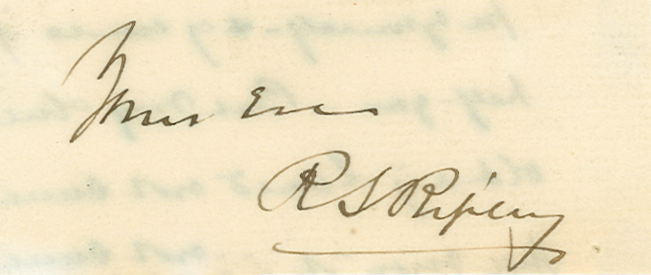 Yours Ever
R S Ripley